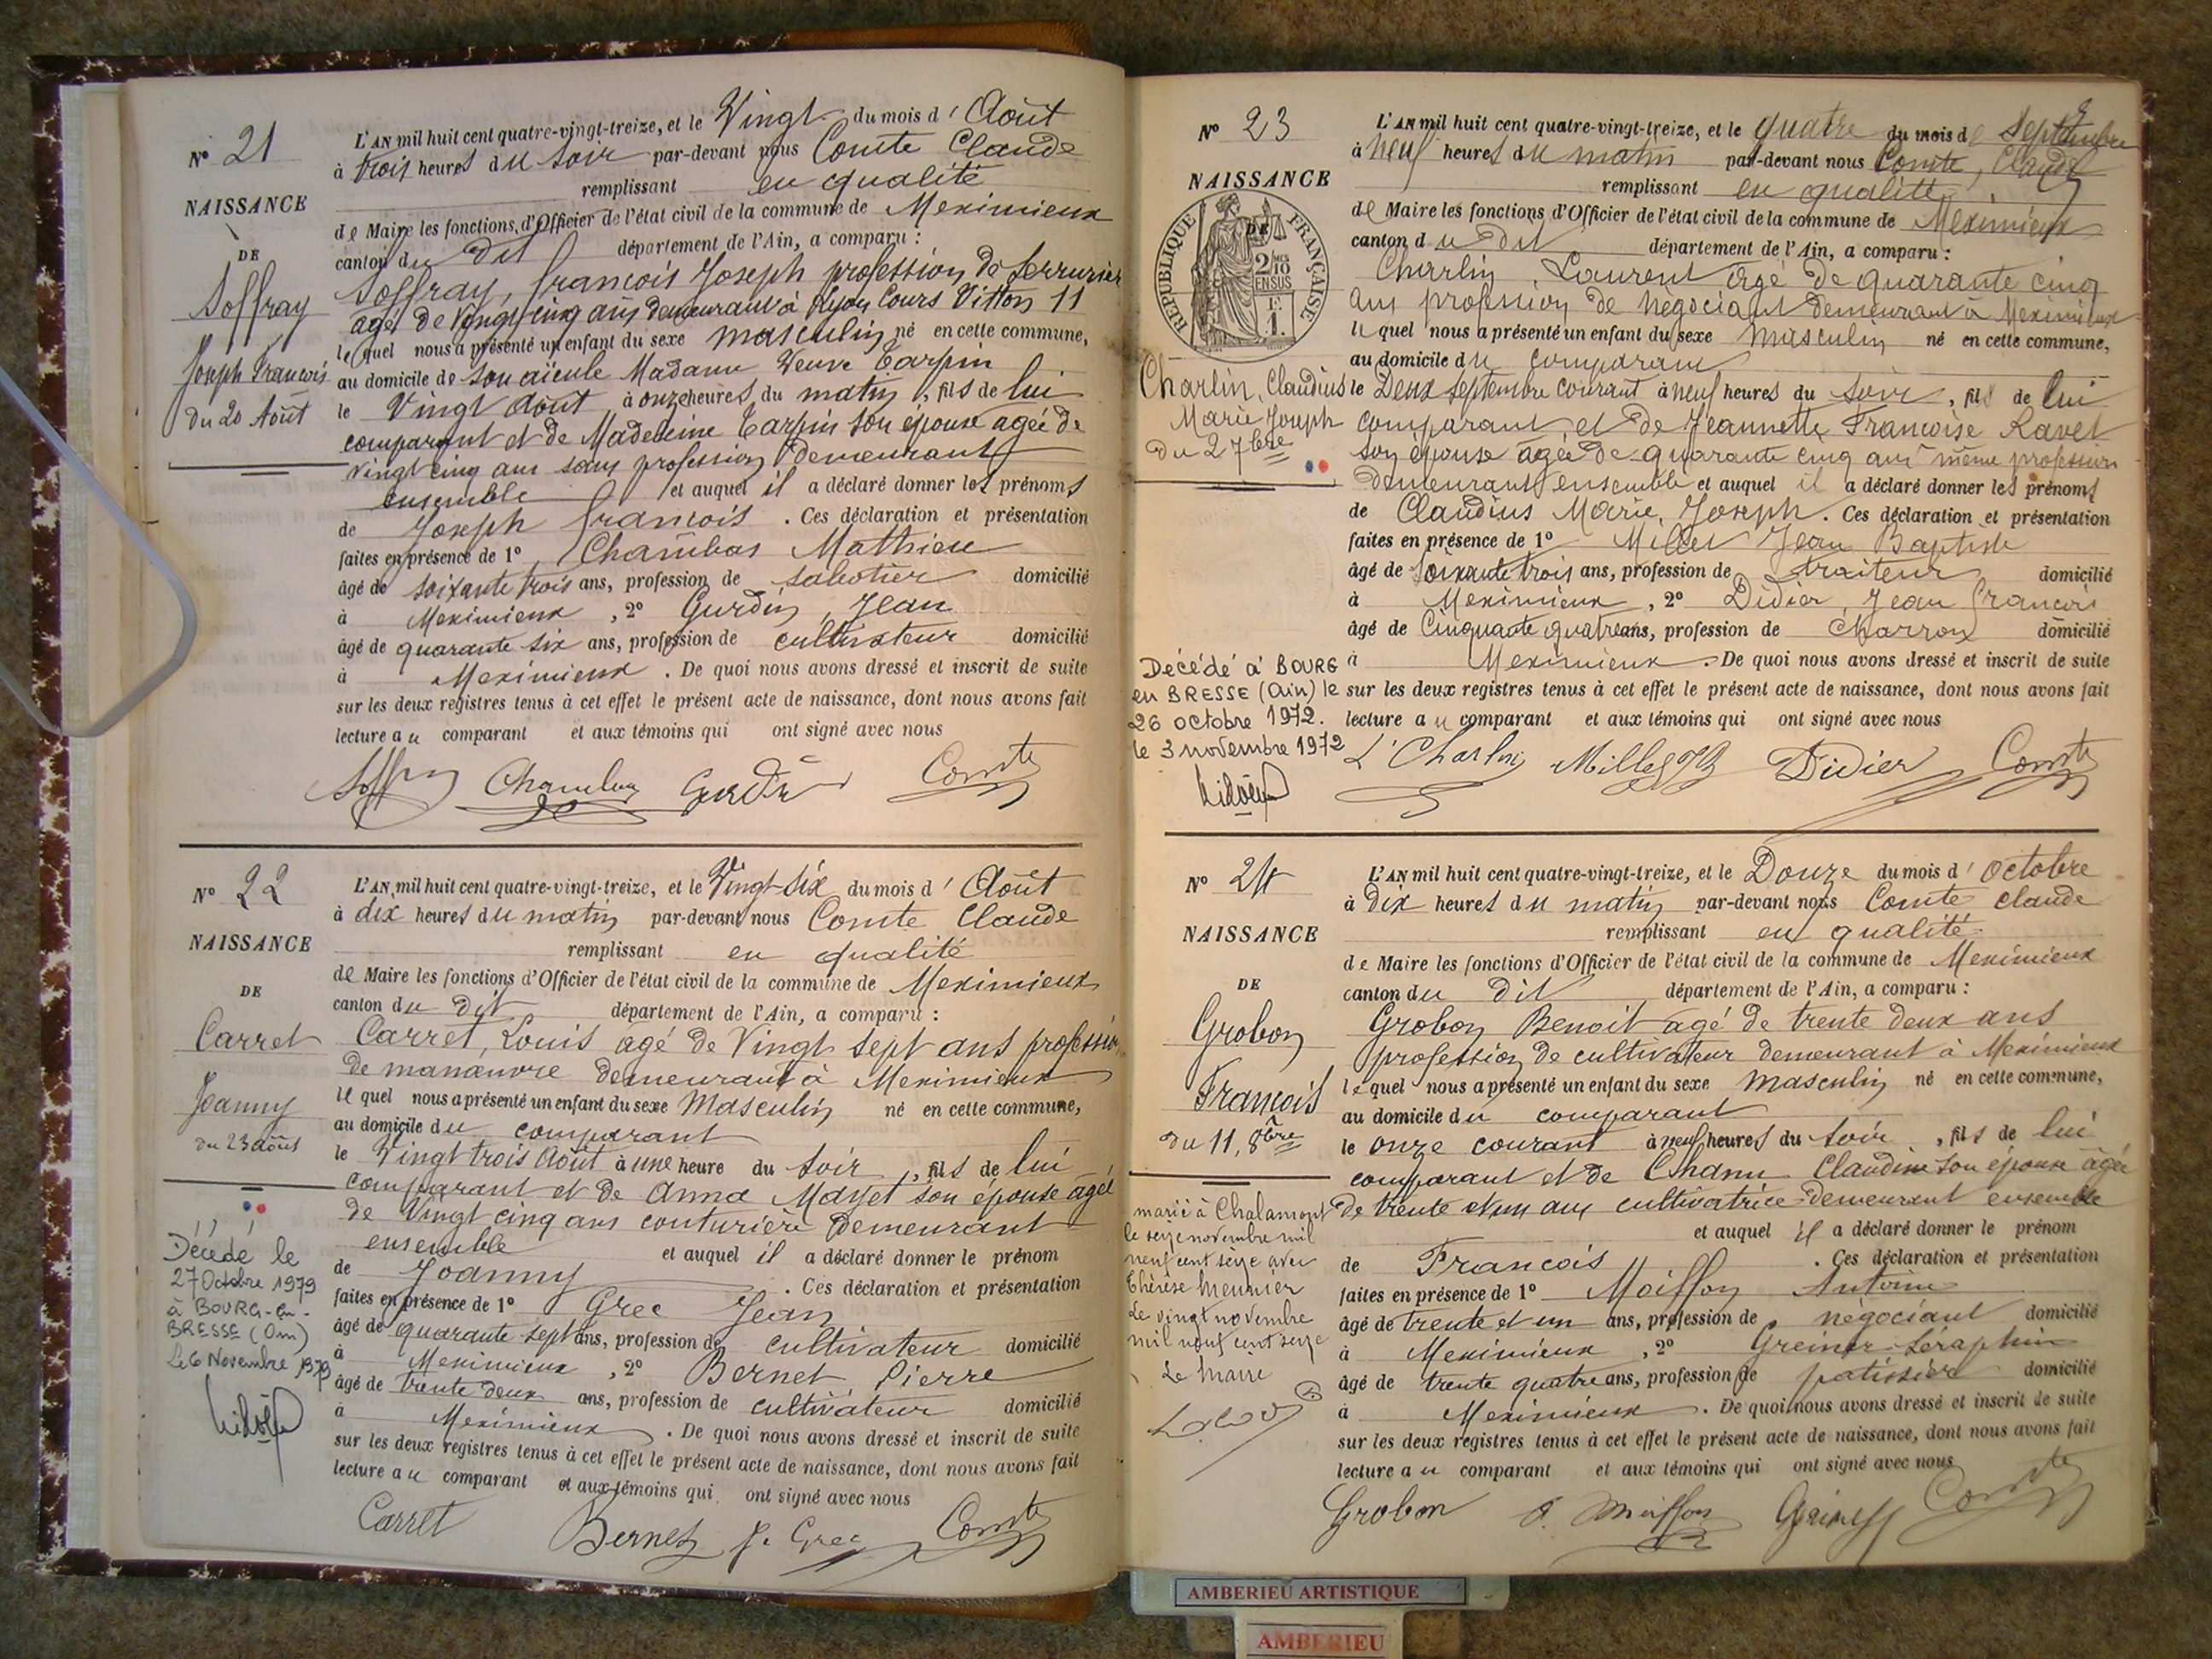 N° 21
NAISSANCE
DE
Soffray
Joseph François
du 20 Août
L'AN mil huit cent quatre-vingt-treize, et le Vingt du mois d' Août
à trois heures du soir par-devant nous Comte Claude
remplissant en qualité
de Maire les fonctions d'Officier de l'état civil de la commune de Meximieux
canton du dit département de l'Ain, a comparu :
Soffray, françois Joseph profession de serrurier
agé de vingt cinq ans demeurant à Lyon Cours Vitton 11
lequel nous a présenté un enfant du sexe masculin né en cette commune,
au domicile de son aïeule Madame Veuve Carpin
le Vingt Août à onze heures du matin, fils de lui
comparant et de Madeleine Carpin son épouse agée de
vingt cinq ans sans profession demeurant
ensemble et auquel il a déclaré donner les prénoms
de Joseph françois . Ces déclaration et présentation
faites en présence de 1° Chambas Mathieu
âgé de soixante trois ans, profession de sabotier domicilié
à Meximieux, 2° Gurdin, Jean
âgé de quarante six ans, profession de cultivateur domicilié
à Meximieux . De quoi nous avons dressé et inscrit de suite
sur les deux registres tenus à cet effet le présent acte de naissance, dont nous avons fait
lecture au comparant et aux témoins qui ont signé avec nous
Comte
N° 22
NAISSANCE
DE
Carret
Joanny
du 23 août
Décédé le
27 Octobre 1979
à BOURG-en-
BRESSE (Ain)
Le 6 Novembre 1979
L'AN mil huit cent quatre-vingt-treize, et le Vingt-six du mois d' Août
à dix heures du matin par-devant nous Comte Claude
remplissant en qualité
de Maire les fonctions d'Officier de l'état civil de la commune de Meximieux
canton du dit département de l'Ain, a comparu :
Carret, Louis agé de Vingt sept ans profession
de manœuvre demeurant à Meximieux
lequel nous a présenté un enfant du sexe Masculin né en cette commune,
au domicile du comparant
le Vingt trois Août à une heure du soir, fils de lui
comparant et de Anna Mayet son épouse agée
de Vingt cinq ans couturière demeurant
ensemble et auquel il a déclaré donner le prénom
de Joanny . Ces déclaration et présentation
faites en présence de 1° Grec Jean
âgé de quarante sept ans, profession de cultivateur domicilié
à Meximieux, 2° Bernet Pierre
âgé de trente deux ans, profession de cultivateur domicilié
à Meximieux . De quoi nous avons dressé et inscrit de suite
sur les deux registres tenus à cet effet le présent acte de naissance, dont nous avons fait
lecture au comparant et aux témoins qui ont signé avec nous
Carret Bernet J. Grec Comte
N° 23
NAISSANCE
DE
RÉPUBLIQUE FRANÇAISE
2/10 EN SUS
1F.
Charlin, Claudius
Marie Joseph
Du 2 7bre
Décédé à BOURG
en BRESSE (Ain) le
26 octobre 1972.
le 3 novembre 1972
L'AN mil huit cent quatre-vingt-treize, et le quatre du mois de Septembre
à neuf heures du matin par-devant nous Comte, Claude
remplissant en qualité
de Maire les fonctions d'Officier de l'état civil de la commune de Meximieux
canton du dit département de l'Ain, a comparu :
Charlin Laurent agé de quarante cinq
ans profession de négociant demeurant à Meximieux
lequel nous a présenté un enfant du sexe masculin né en cette commune,
au domicile du comparant
le Deux septembre courant à neuf heures du soir, fils de lui
comparant et de Jeannette Françoise Ravet
son épouse agée de quarante cinq ans même profession
demeurant ensemble et auquel il a déclaré donner les prénoms
de Claudius Marie Joseph . Ces déclaration et présentation
faites en présence de 1° Millet Jean Baptiste
âgé de soixante trois ans, profession de traiteur domicilié
à Meximieux, 2° Didier, Jean françois
âgé de Cinquante quatre ans, profession de Charron domicilié
à Meximieux . De quoi nous avons dressé et inscrit de suite
sur les deux registres tenus à cet effet le présent acte de naissance, dont nous avons fait
lecture au comparant et aux témoins qui ont signé avec nous
L. Charlin Millet JB Didier Comte
N° 24
NAISSANCE
DE
Grobon
François
du 11, 8bre
marié à Chalamont
le seize novembre mil
neuf cent seize avec
Thérèse Meunier
Le vingt novembre
mil neuf cent seize
Le Maire
L'AN mil huit cent quatre-vingt-treize, et le Douze du mois d' Octobre
à dix heures du matin par-devant nous Comte Claude
remplissant en qualité
de Maire les fonctions d'Officier de l'état civil de la commune de Meximieux
canton du dit département de l'Ain, a comparu :
Grobon Benoit agé de trente deux ans
profession de cultivateur demeurant à Meximieux
lequel nous a présenté un enfant du sexe masculin né en cette commune,
au domicile du comparant
le onze courant à neuf heures du soir, fils de lui
comparant et de Chanu Claudine son épouse agée
de trente et un ans cultivatrice demeurant ensemble
et auquel il a déclaré donner le prénom
de François . Ces déclaration et présentation
faites en présence de 1° Moiffon Antoine
âgé de trente et un ans, profession de négociant domicilié
à Meximieux, 2° Greiner Séraphin
âgé de trente quatre ans, profession de patissier domicilié
à Meximieux . De quoi nous avons dressé et inscrit de suite
sur les deux registres tenus à cet effet le présent acte de naissance, dont nous avons fait
lecture au comparant et aux témoins qui ont signé avec nous
Grobon A. Moiffon Comte
AMBERIEU ARTISTIQUE
AMBERIEU